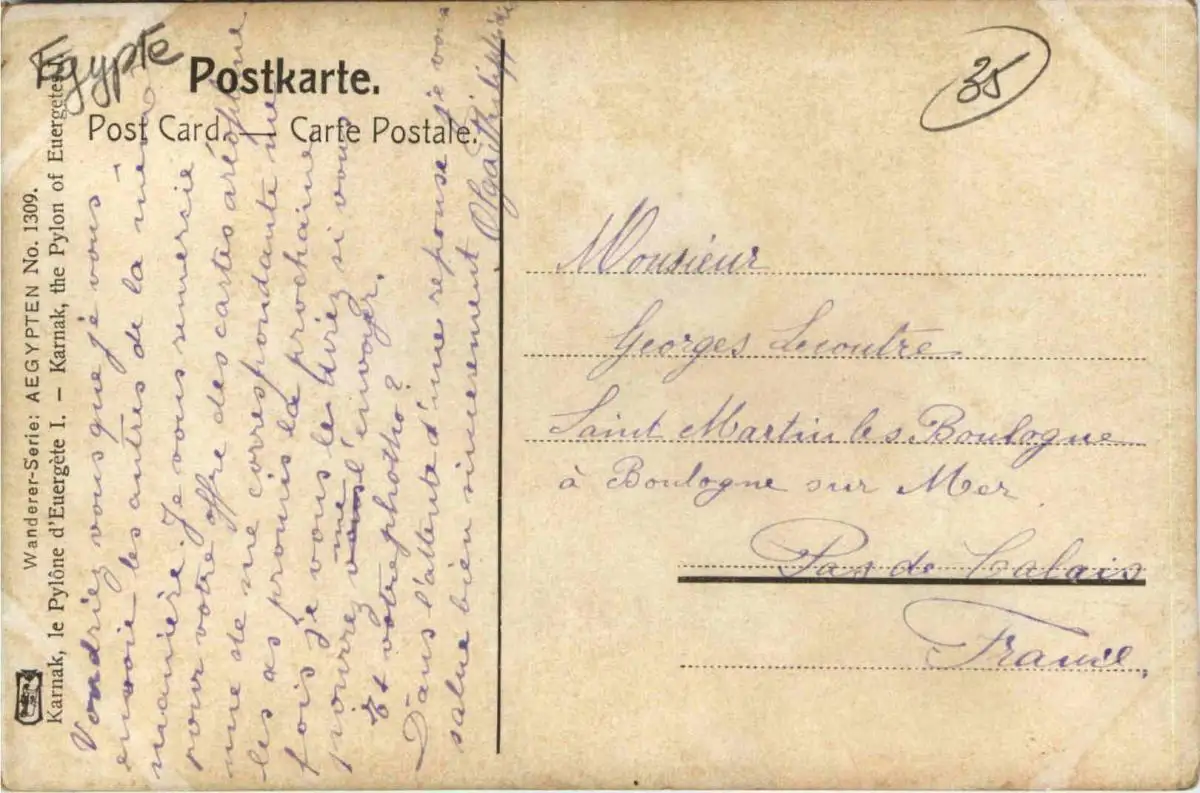 Egypte
Postkarte.
Post Card. — Carte Postale.
35
Wanderer-Serie: AEGYPTEN No. 1309.
Karnak, le Pylône d'Euergète I. — Karnak, the Pylon of Euergetes I.
Voudriez vous que je vous
envoie les autres de la même
manière. Je vous remercie
pour votre offre des cartes aréoplane
une de me correspondante me
les as promis la prochaine
fois je vous le direz si vous
pourrez me l'envoyer.
Et votre photho?
Dans l'attente d'une reponse je vous
salue bien sincerement
Olga Philippide
Monsieur
Georges Lecoutre
Saint Martin les Boulogne
à Boulogne sur Mer
Pas de Calais
France,